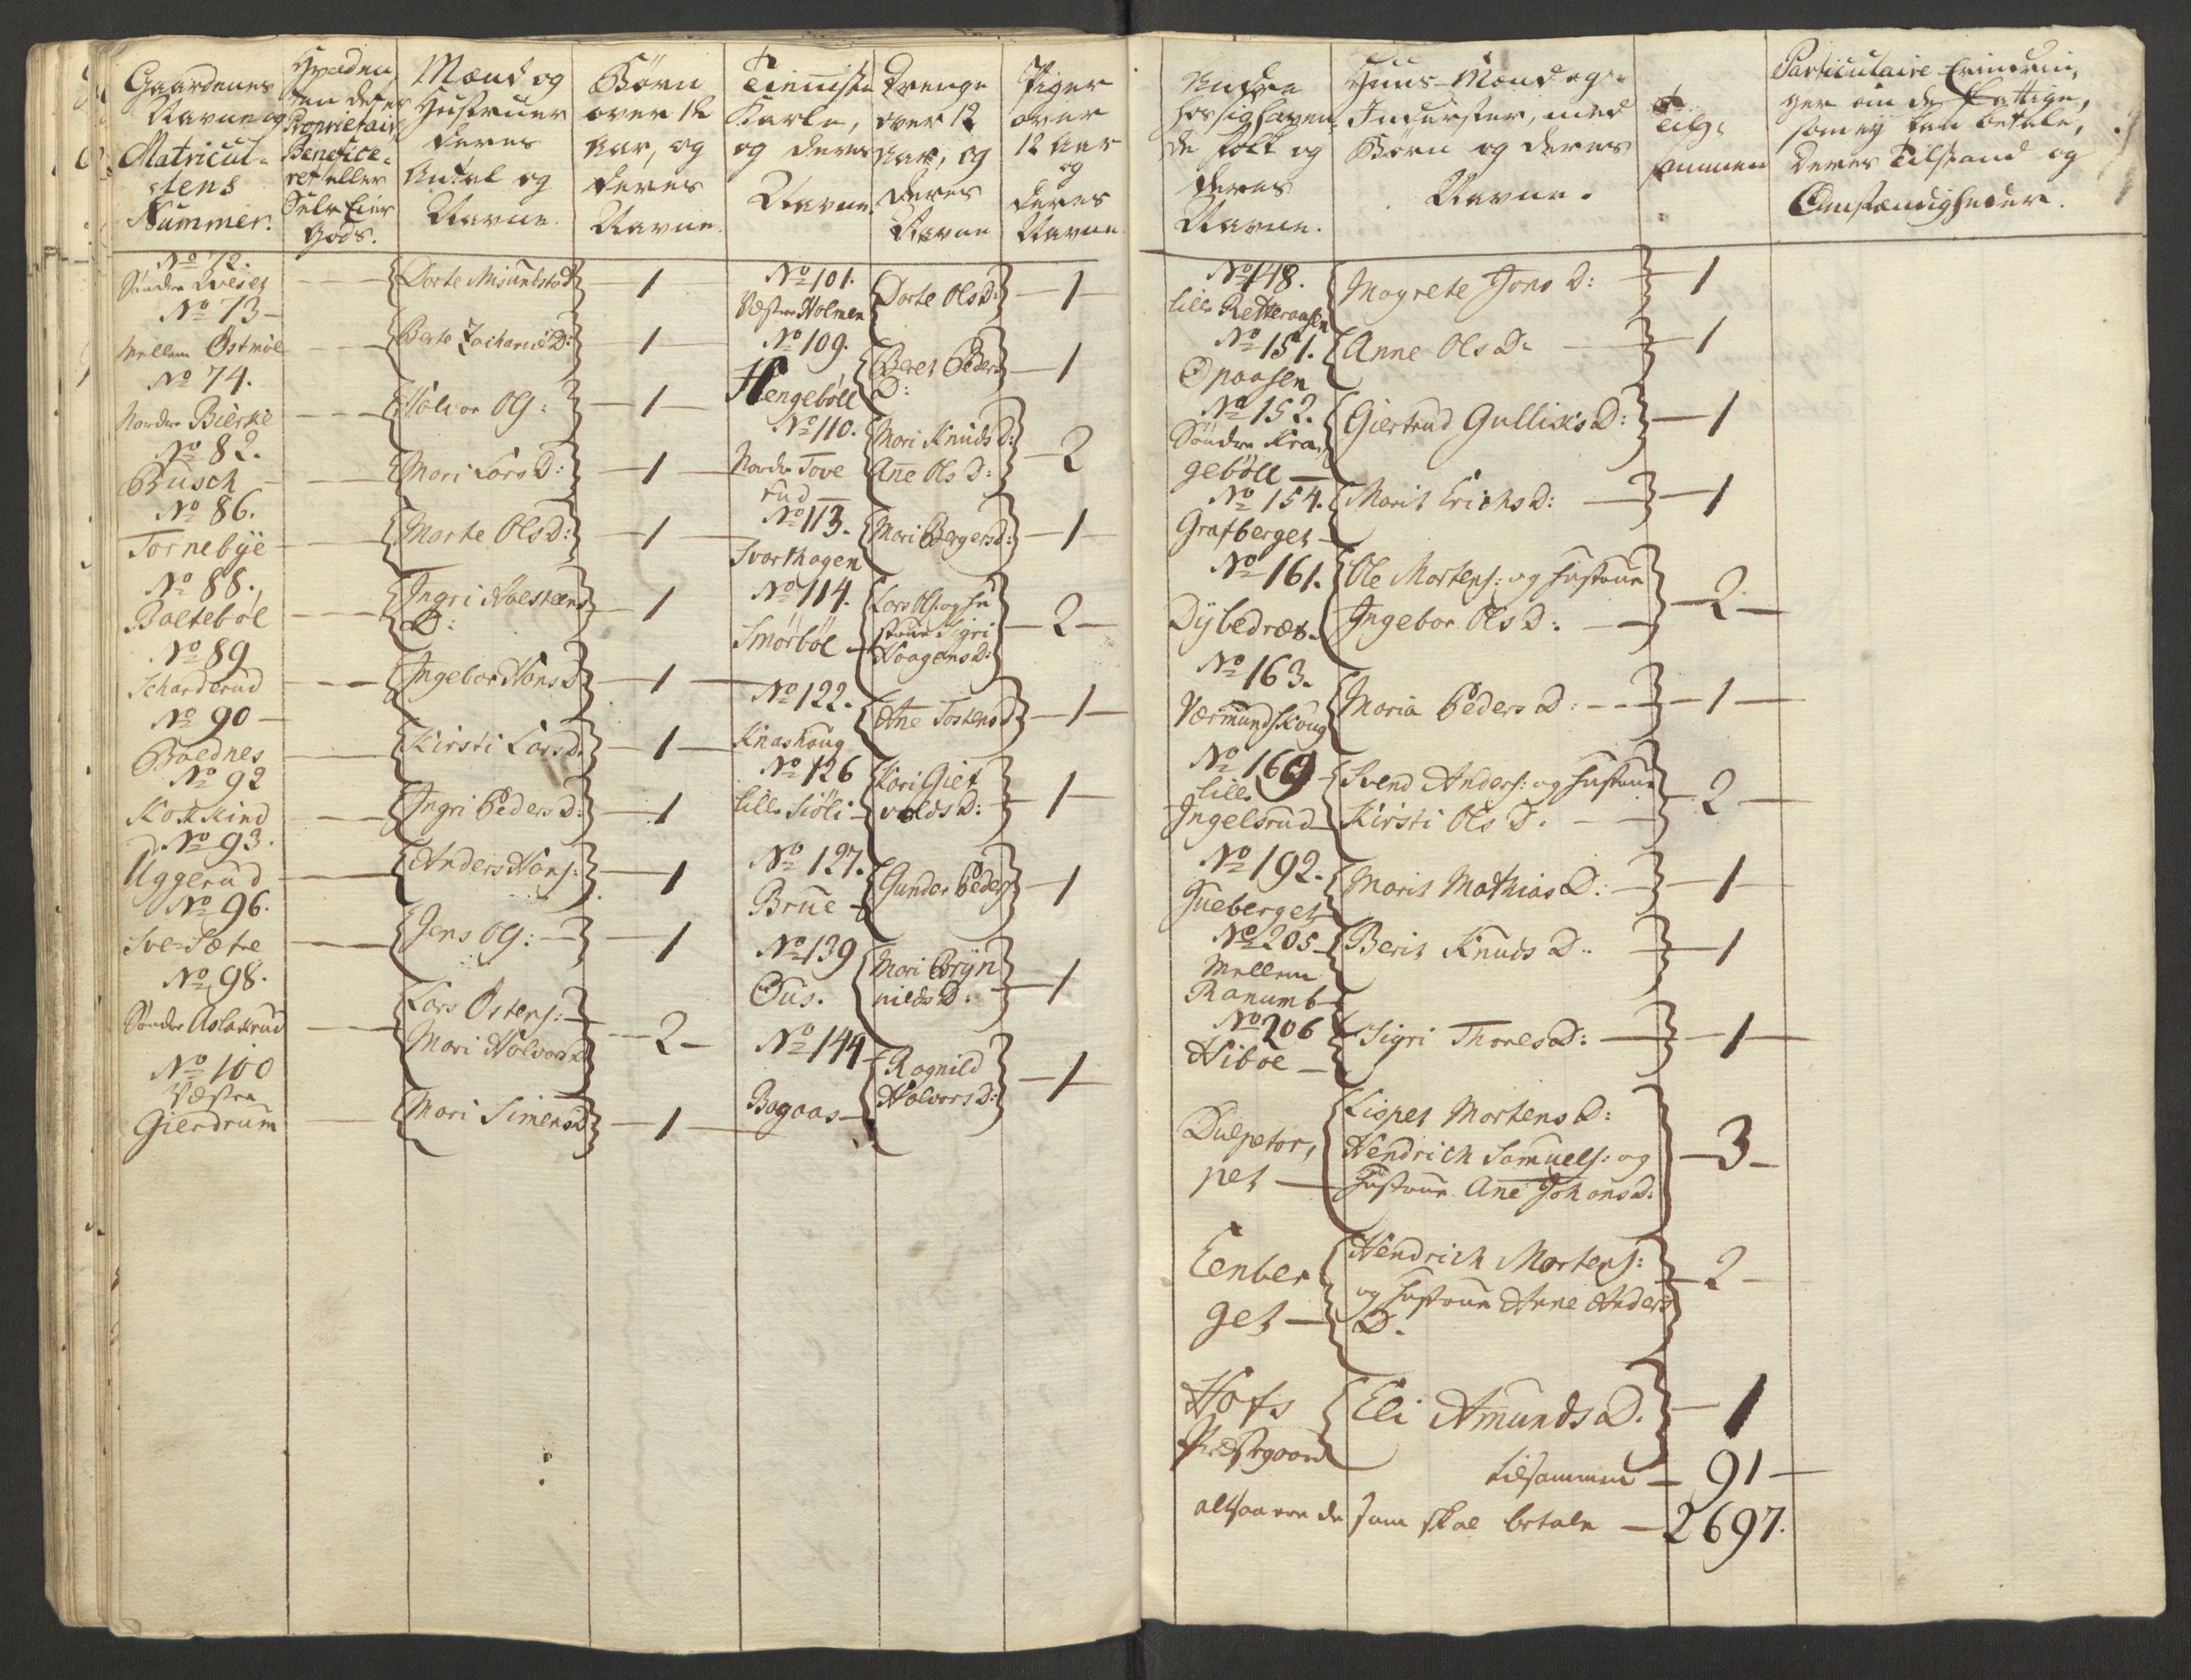 Gaardenes
Navne og
Matricul-
stens
Nummer.
Hvad en
ten det er
Proprietair
Benefice-
ret eller
Selv Eier
Gods.
Mænd og
Hustruer
deres
Antal og
Navne.
Børn
over 12
Aar, og
deres
Navne.
Tienniste
Karle,
og deres
Navne.
Drenge
over 12
Aar, og
deres
Navne
Piger
over
12 Aar
og
deres
Navne
No 72.
Søndre Qvesel
Dorte Amundsto D
1
No 73
Mellem Østmøe
Berte Zacharie D:
1
No 74.
Nordre Bierke
Halvor Ols:
1
No 82.
Busch
Mari Lars D:
1
No 86.
Tornebye
Marte Ols D:
1
No 88.
Boltebøl
Ingri Halsteens
D:
1
No 89
Scharderud
Ingebor Hans D
1
No 90
Boednes
Kirsti Lars D.
1
No 92
Kokkind
Ingri Peders D:
1
No 93.
Uggerud
Anders Hans:
1
No 96.
Sve-Sætre
Jens Ols:
1
No 98.
Søndre Aslakrud
Lars Østens:
Mari Halvors D
2
No 100
Vestre
Gierdrum
Mari Simens D
1
No 101.
Vestre Holmen
Dorte Ols D:
1
No 109.
Hengebøll
Beret Peders
D:
1
No 110.
Nordre Tove
rud
Mari Knuds D:
Ane Ols D:
2
No 113.
Svarthagen
Mari Bergers D:
1
No 114.
Smørbøl
Lars Ols: og Hu
strue Sigri
Haagens D:
2
No 122.
Knashoug
Ane Tostens D
1
No 126
Lille Siøli
Kari Giet
volds D:
1
No 127.
Brue
Gunder Peders
1
No 139
Ous.
Mari Bryn
nilds D:
1
No 144
Bagaas
Ragnild
Halvors D:
1
Andre
hos sig haven-
de folk og
deres
Navne.
Huus-Mænd og
Inderster, med
Børn og deres
Navne.
Tils-
ammen
Particulaire Erindrin,
ger om de Fattige,
som ej kan betale,
deres Tilstand og
Omstændigheder.
No 148.
Lille Retteraasen
Magrete Jons D:
1
No 151.
Opaasen
Anne Ols D:
1
No 152.
Søndre Kra,
gebøll
Giertrud Gulliks D:
1
No 154.
Grafberget
Marit Erichs D:
1
No 161.
Dybedræt
Ole Mortens: og Hustrue
Ingebor Ols D:
2
No 163.
Varmundskoug
Maria Peders D:
1
No 169
Lille
Ingelsrud
Svend Anders: og Hustrue
Kirsti Ols D.
2
No 192.
Tueberget
Marit Mathias D:
1
No 205
Mellem
Ranumb
Berit Knuds D.
1
No 206
Hiboe
Sigri Thores D:
1
Dulpetor,
pet
Lispet Mortens D:
Hendrich Samuels: og
Hustrue Ane Johans D:
3
Eenber
get
Hendrich Mortens:
og Hustrue Anne Anders
D.
2
Hofs
Præstgaard
Eli Amunds D.
1
tilsammen 91
altsaa ere de som skal betale 2697.